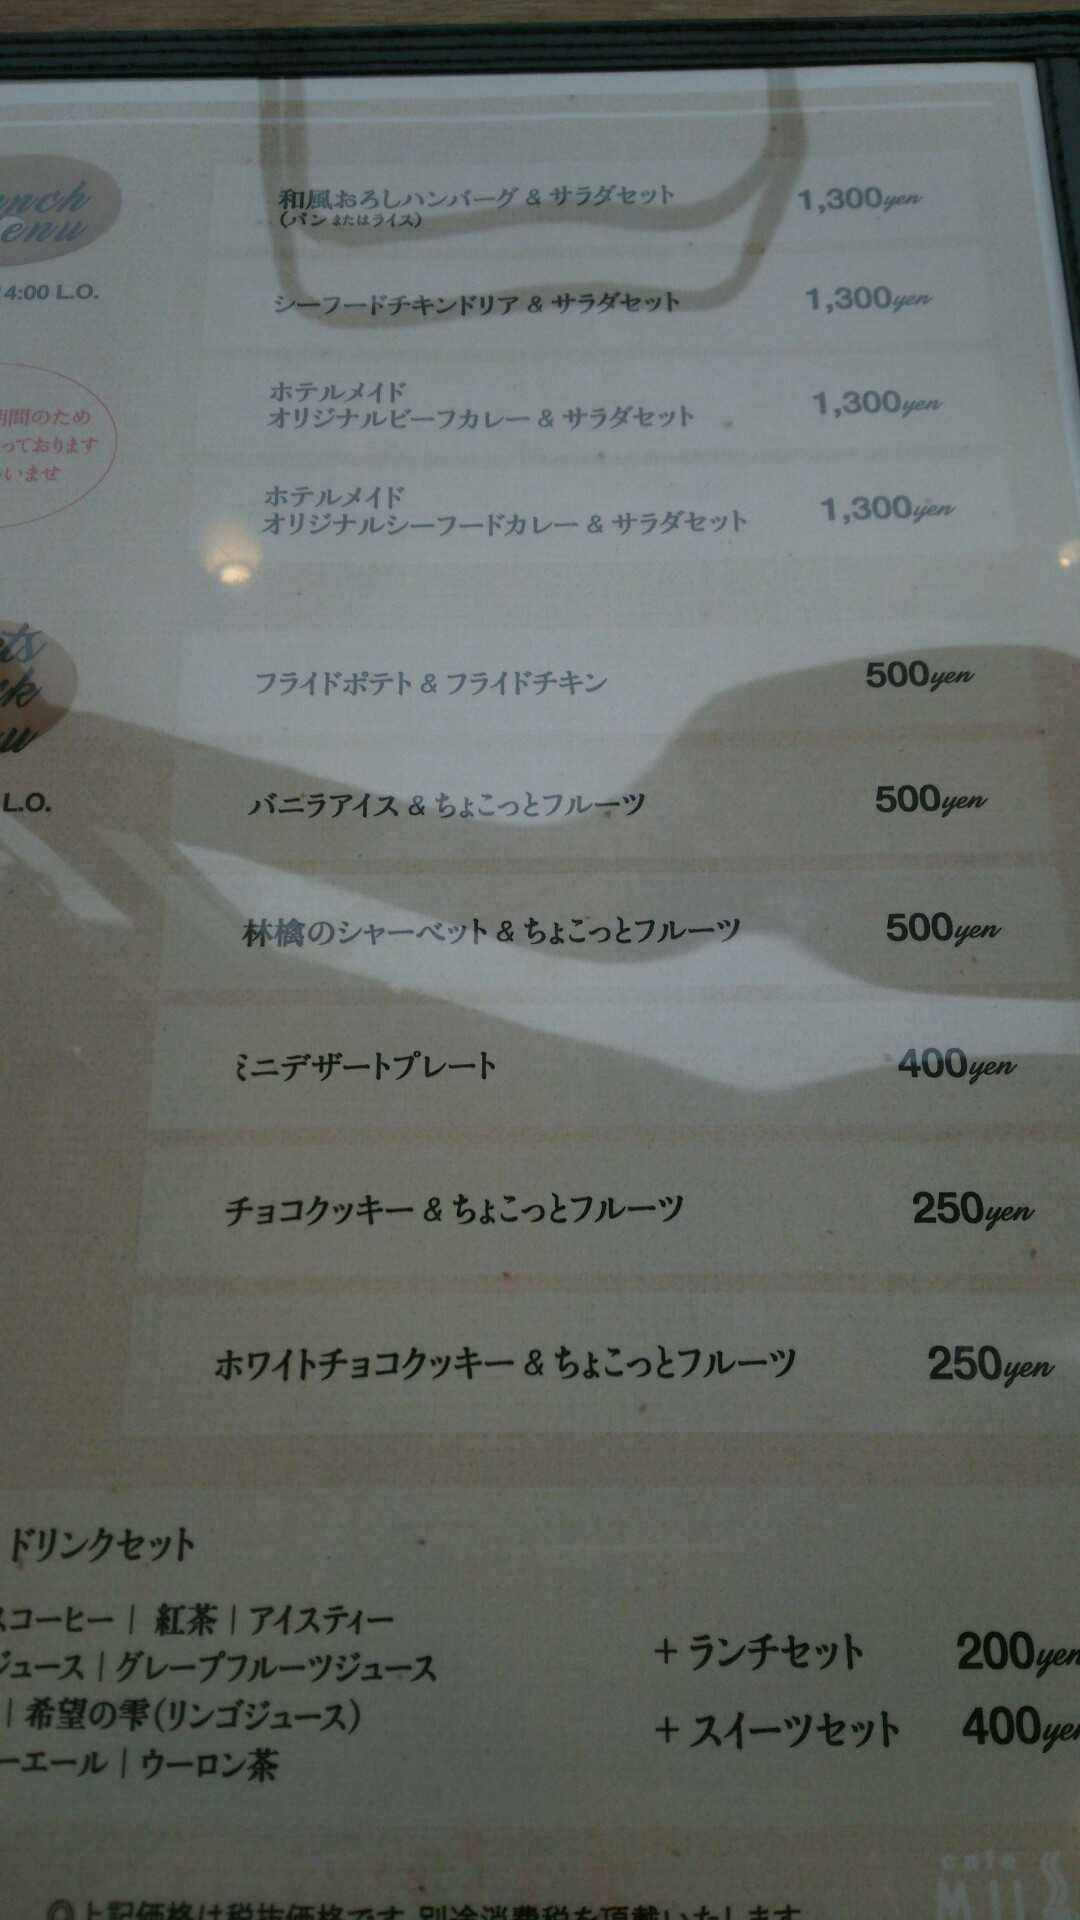 和風おろしハンバーグ & サラダセット 1,300yen
(パン またはライス)
シーフードチキンドリア & サラダセット 1,300yen
14:00 L.O.
ホテルメイド
オリジナルビーフカレー & サラダセット 1,300yen
期間のため
っております
いませ
ホテルメイド
オリジナルシーフードカレー & サラダセット 1,300yen
フライドポテト & フライドチキン 500yen
バニラアイス & ちょこっとフルーツ 500yen
L.O.
林檎のシャーベット & ちょこっとフルーツ 500yen
ミニデザートプレート 400yen
チョコクッキー & ちょこっとフルーツ 250yen
ホワイトチョコクッキー & ちょこっとフルーツ 250yen
ドリンクセット
スコーヒー | 紅茶 | アイスティー
ジュース | グレープフルーツジュース
| 希望の雫(リンゴジュース)
ーエール | ウーロン茶
+ ランチセット 200yen
+ スイーツセット 400yen
cafe
◎上記価格は税抜価格です。別途消費税を頂戴いたします